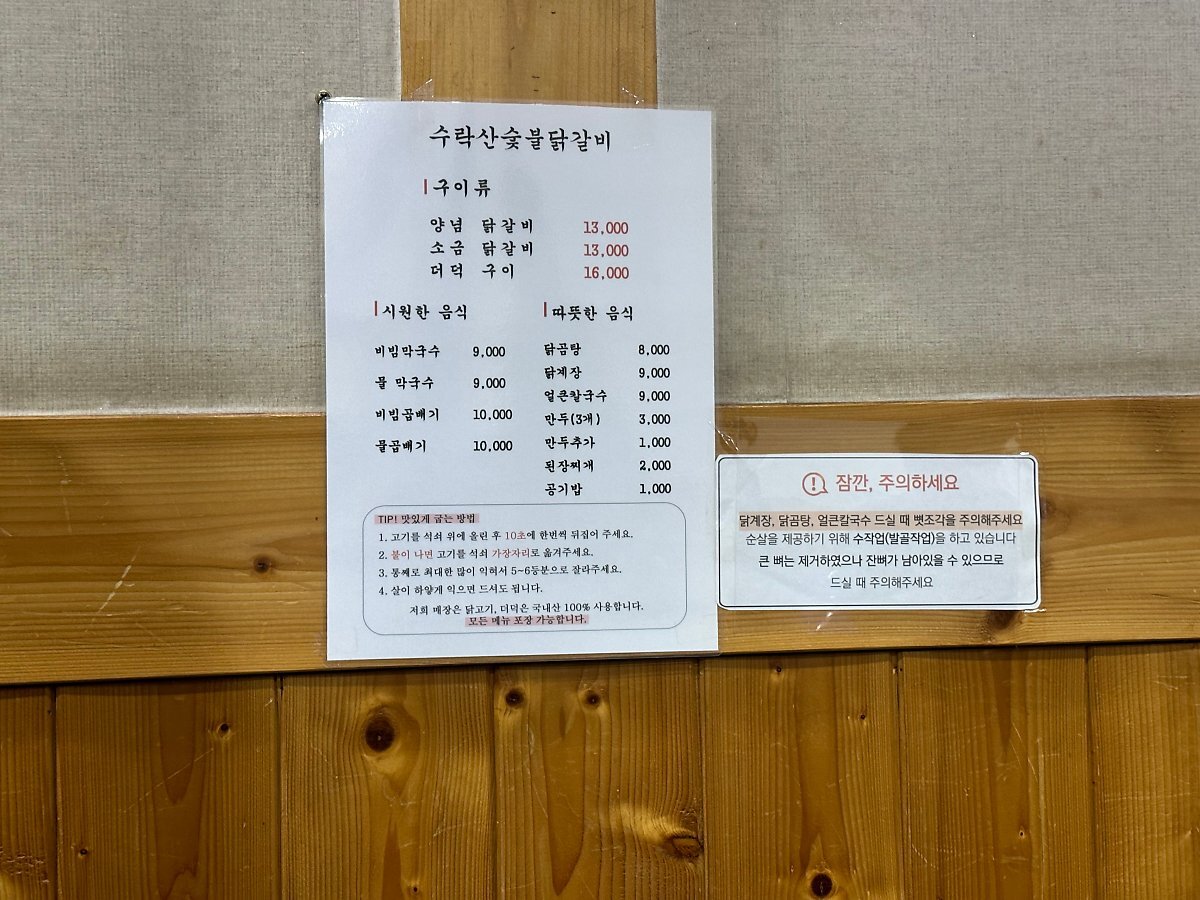 수락산숯불닭갈비
구이류
양념 닭갈비 13,000
소금 닭갈비 13,000
더덕 구이 16,000
시원한 음식
비빔막국수 9,000
물 막국수 9,000
비빔곱배기 10,000
물곱배기 10,000
따뜻한 음식
닭곰탕 8,000
닭계장 9,000
얼큰칼국수 9,000
만두(3개) 3,000
만두추가 1,000
된장찌개 2,000
공기밥 1,000
TIP! 맛있게 굽는 방법
1. 고기를 석쇠 위에 올린 후 10초에 한번씩 뒤집어 주세요.
2. 불이 나면 고기를 석쇠 가장자리로 옮겨주세요.
3. 통째로 최대한 많이 익혀서 5~6등분으로 잘라주세요.
4. 살이 하얗게 익으면 드셔도 됩니다.
저희 매장은 닭고기, 더덕은 국내산 100% 사용합니다.
모든 메뉴 포장 가능합니다.
잠깐, 주의하세요
닭계장, 닭곰탕, 얼큰칼국수 드실 때 뼛조각을 주의해주세요
순살을 제공하기 위해 수작업(발골작업)을 하고 있습니다
큰 뼈는 제거하였으나 잔뼈가 남아있을 수 있으므로
드실 때 주의해주세요